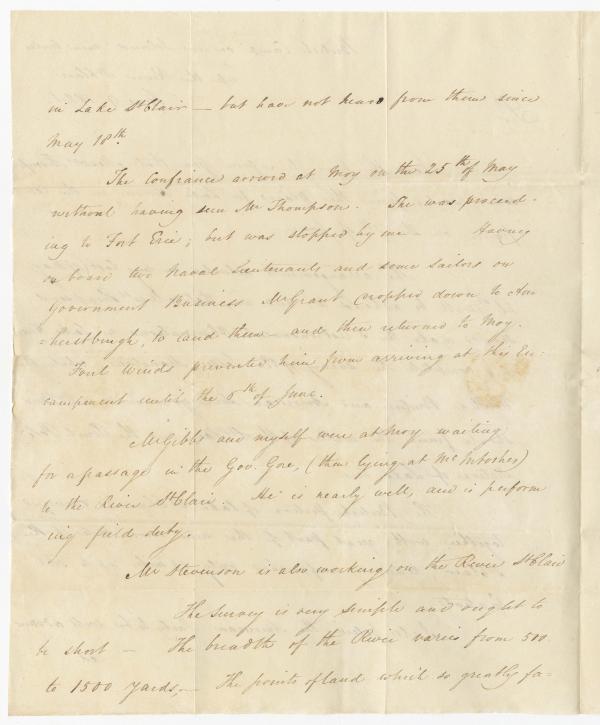 in Lake St Clair — but have not heard from them since
May 18th.
The Confiance arrived at Moy on the 25th of May
without having seen Mr Thompson. She was proceed-
ing to Fort Erie; but was stopped by me — Having
on board two Naval Lieutenants and some sailors on
Government Business Mr Grant dropped down to Am-
=herstburgh, to land them — and then returned to Moy.
Foul Winds prevented him from arriving at this En-
campment until the 6th of June.
Mr Gibbs and myself were at Moy waiting
for a passage in the Gov. Gore, (then lying at McIntoshes)
to the River St Clair. He is nearly well, and is perform
ing field duty.
Mr Stevenson is also working on the River St Clair
The Survey is very simple and ought to
be short — The breadth of the River varies from 500
to 1500 yards, — The points of land which so greatly fa-